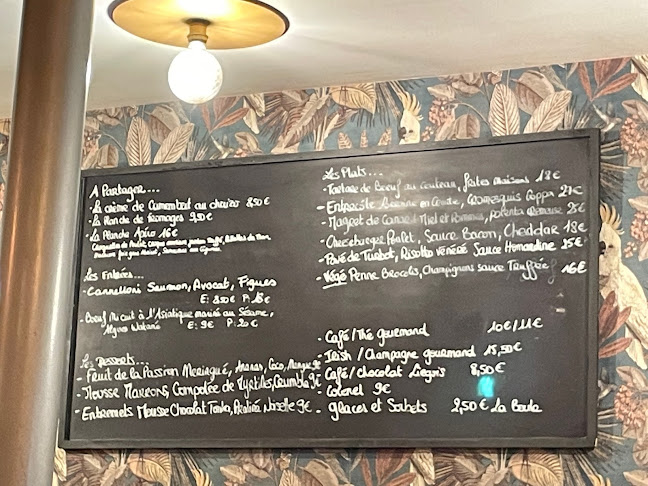 A Partager...
- La crème de Camembert au chorizo 8,50€
- La Planche de fromages 9,50€
- La Planche Apéro 16€
Les Entrées...
- Cannelloni Saumon, Avocat, Figues
E: 8.50€ P:
- Boeuf Mi cuit à l'Asiatique mariné au Sésame,
Algues Wakamé E: 9€ P: 20€
Les Desserts...
- Fruit de la Passion Meringué, Ananas, Coco, Mangue 9€
- Mousse Marrons, Compotée de Myrtilles, Crumble 9€
- Entremets Mousse Chocolat Tonka, Praliné Noisette 9€
Les Plats...
- Tartare de Boeuf au Couteau, frites maisons 18€
- Entrecôte
- Magret de Canard Miel et Pommes, polenta crémeuse
- Cheeseburger Poulet, Sauce Bacon, Cheddar 18€
- Pavé de Turbot, Risotto Vénéré Sauce Homardine
- Végé Penne Brocolis, Champignons sauce Truffée 16€
- Café/Thé gourmand 10€/11€
- Irish / Champagne gourmand 15,50€
- Café/Chocolat Liegois 8,50€
- Colonel 9€
- glaces et Sorbets 2,50€ La Boule